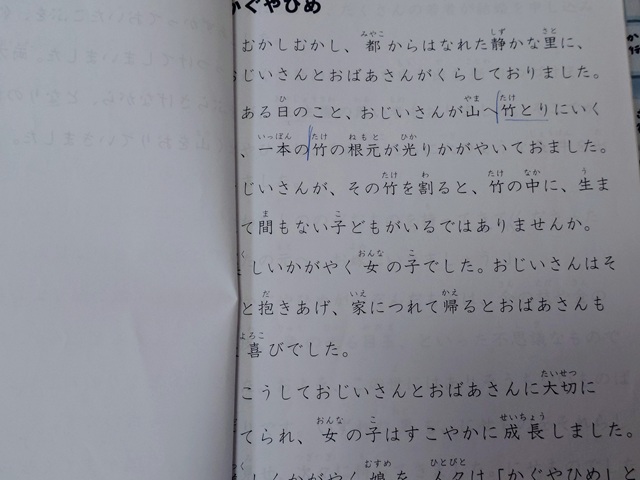 かぐやひめ
むかしむかし、都からはなれた静かな里に、
おじいさんとおばあさんがくらしておりました。
ある日のこと、おじいさんが山へ竹とりにいく
、一本の竹の根元が光りかがやいておました。
じいさんが、その竹を割ると、竹の中に、生ま
て間もない子どもがいるではありませんか。
しいかがやく女の子でした。おじいさんはそ
と抱きあげ、家につれて帰るとおばあさんも
喜びでした。
こうしておじいさんとおばあさんに大切に
てられ、女の子はすこやかに成長しました。
しくかがやく娘を、人々は「かぐやひめ」と